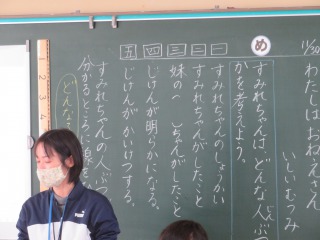 11/30
わたしはおねえさん
いしいむつみ
め
すみれちゃんは、どんな人ぶつ
かを考えよう。
一 すみれちゃんのしょうかい
二 すみれちゃんがしたこと
三 妹の ちゃんがしたこと
四 じけんが明らかになる。
五 じけんが かいけつする。
すみれちゃんの人ぶつ
分かるところに
どんな